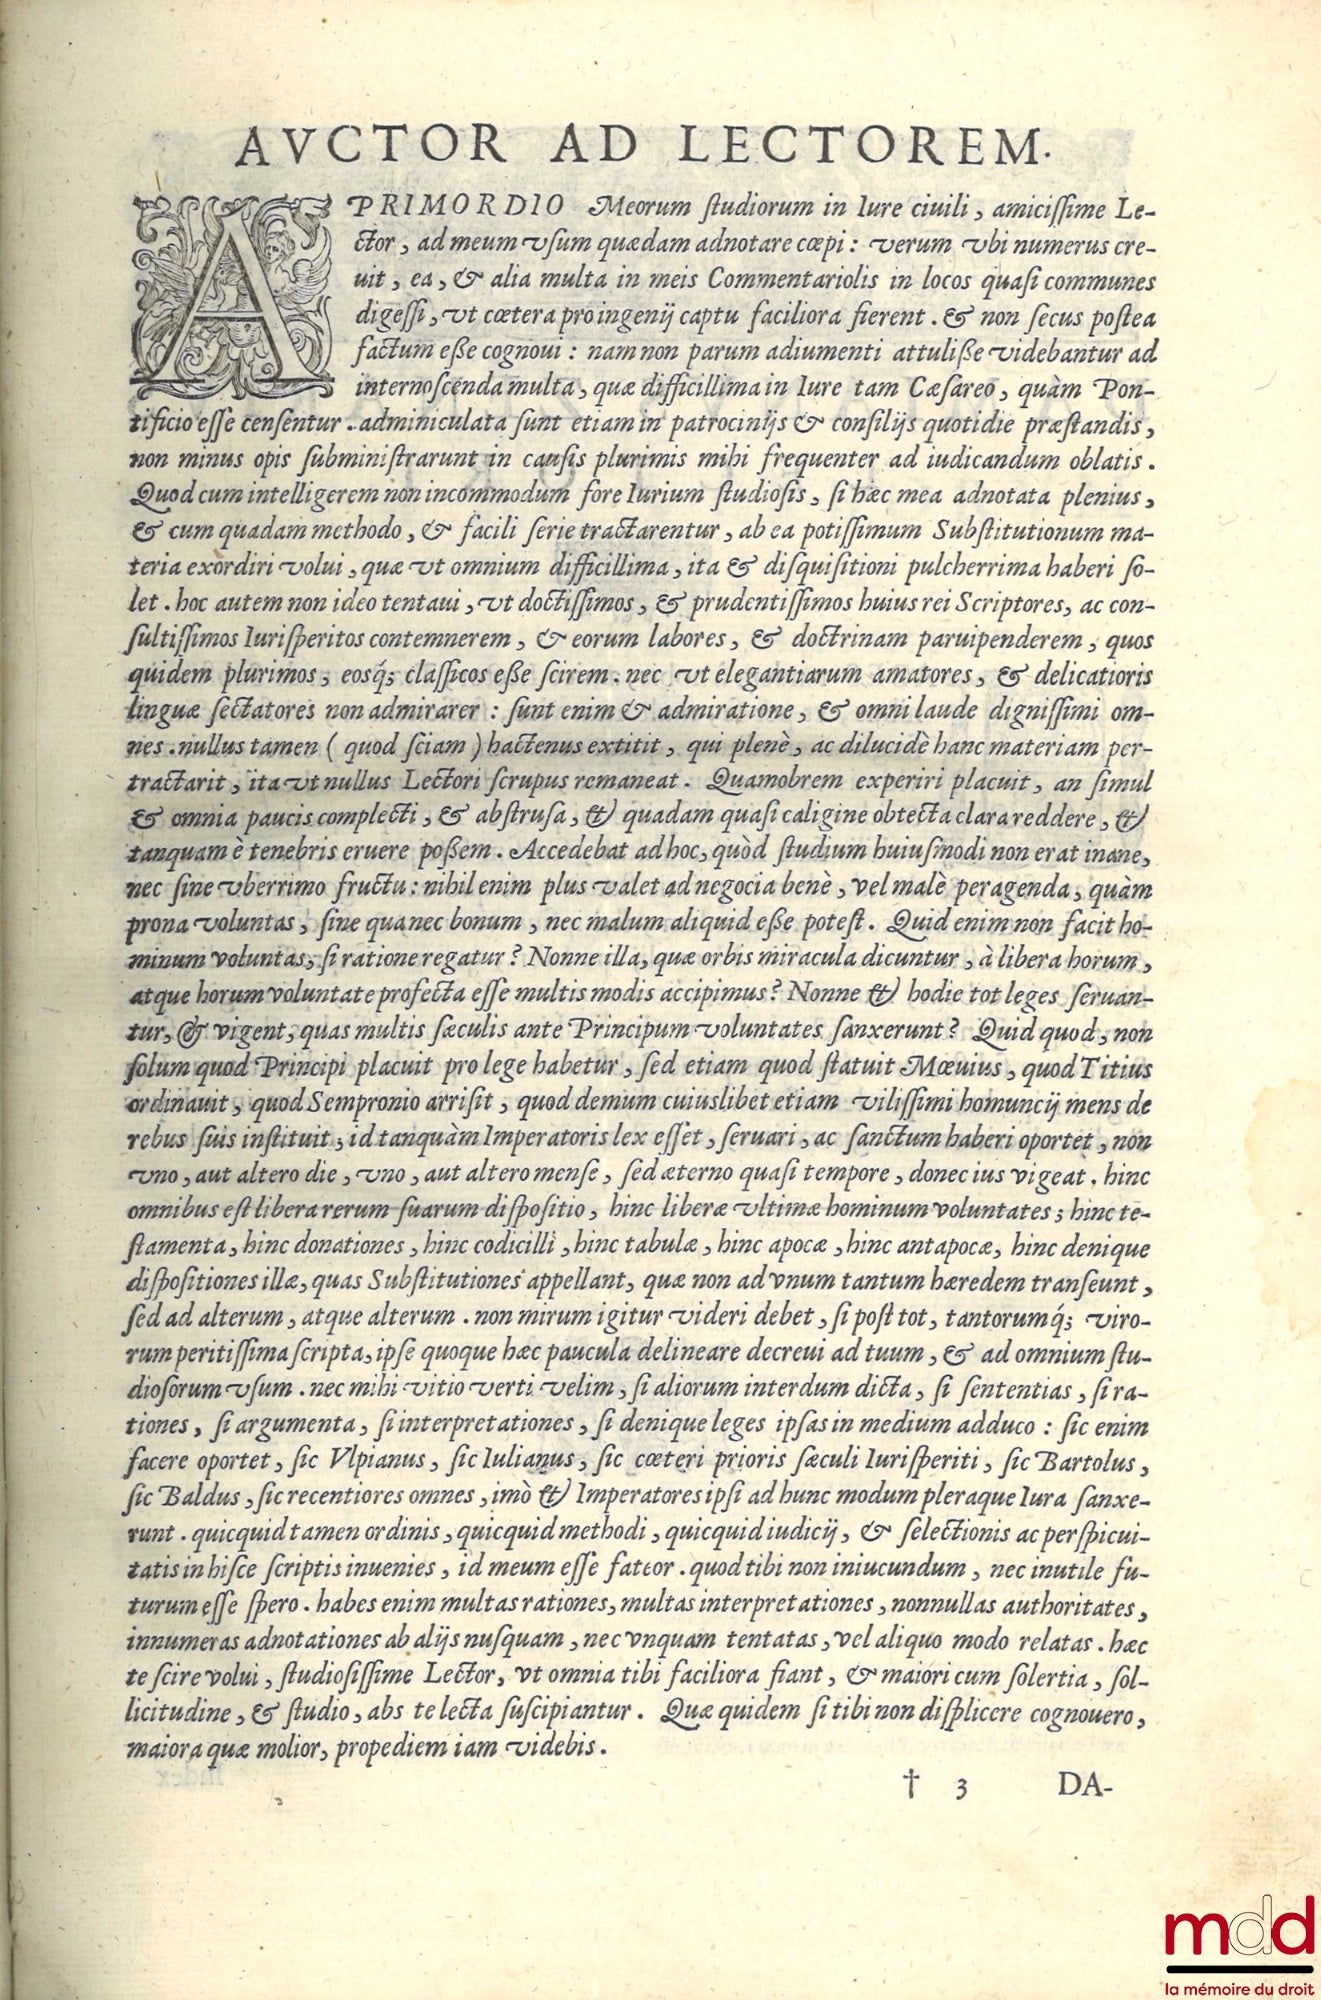 AVCTOR AD LECTOREM.
A PRIMORDIO Meorum ſtudiorum in Iure ciuili, amiciſſime Le-
ctor, ad meum vſum quædam adnotare cœpi: verum vbi numerus cre-
uit, ea, & alia multa in meis Commentariolis in locos quaſi communes
digeſſi, vt cœtera pro ingenij captu faciliora fierent. & non ſecus poſtea
factum eße cognoui: nam non parum adiumenti attuliße videbantur ad
internoſcenda multa, quæ difficillima in Iure tam Cæſareo, quàm Pon-
tificio eſſe cenſentur. adminiculata ſunt etiam in patrocinijs & conſilijs quotidie præſtandis,
non minus opis ſubminiſtrarunt in cauſis plurimis mihi frequenter ad iudicandum oblatis.
Quod cum intelligerem non incommodum fore Iurium ſtudioſis, ſi hæc mea adnotata plenius,
& cum quadam methodo, & facili ſerie tractarentur, ab ea potiſſimum Subſtitutionum ma-
teria exordiri volui, quæ vt omnium difficillima, ita & diſquiſitioni pulcherrima haberi ſo-
let. hoc autem non ideo tentaui, vt doctiſſimos, & prudentiſſimos huius rei Scriptores, ac con-
ſultiſſimos Iuriſperitos contemnerem, & eorum labores, & doctrinam paruipenderem, quos
quidem plurimos, eosq́; claſſicos eße ſcirem. nec vt elegantiarum amatores, & delicatioris
linguæ ſectatores non admirarer: ſunt enim & admiratione, & omni laude digniſſimi om-
nes. nullus tamen ( quod ſciam ) hactenus extitit, qui plenè, ac dilucidè hanc materiam per-
tractarit, ita vt nullus Lectori ſcrupus remaneat. Quamobrem experiri placuit, an ſimul
& omnia paucis complecti, & abſtruſa, & quadam quaſi caligine obtecta clara reddere, &
tanquam è tenebris eruere poßem. Accedebat ad hoc, quòd ſtudium huiuſmodi non erat inane,
nec ſine vberrimo fructu: nihil enim plus valet ad negocia benè, vel malè peragenda, quàm
prona voluntas, ſine qua nec bonum, nec malum aliquid eße poteſt. Quid enim non facit ho-
minum voluntas, ſi ratione regatur? Nonne illa, quæ orbis miracula dicuntur, à libera horum,
atque horum voluntate profecta eſſe multis modis accipimus? Nonne & hodie tot leges ſeruan-
tur, & vigent, quas multis ſæculis ante Principum voluntates ſanxerunt? Quid quod, non
ſolum quod Principi placuit pro lege habetur, ſed etiam quod ſtatuit Mœuius, quod Titius
ordinauit, quod Sempronio arriſit, quod demum cuiuslibet etiam viliſſimi homuncij mens de
rebus ſuis inſtituit, id tanquàm Imperatoris lex eſſet, ſeruari, ac ſanctum haberi oportet, non
vno, aut altero die, vno, aut altero menſe, ſed æterno quaſi tempore, donec ius vigeat. hinc
omnibus eſt libera rerum ſuarum diſpoſitio, hinc liberæ vltimæ hominum voluntates; hinc te-
ſtamenta, hinc donationes, hinc codicilli, hinc tabulæ, hinc apocæ, hinc antapocæ, hinc denique
diſpoſitiones illæ, quas Subſtitutiones appellant, quæ non ad vnum tantum hæredem tranſeunt,
ſed ad alterum, atque alterum. non mirum igitur videri debet, ſi poſt tot, tantorumq́; viro-
rum peritiſſima ſcripta, ipſe quoque hæc paucula delineare decreui ad tuum, & ad omnium ſtu-
dioſorum vſum. nec mihi vitio verti velim, ſi aliorum interdum dicta, ſi ſententias, ſi ra-
tiones, ſi argumenta, ſi interpretationes, ſi denique leges ipſas in medium adduco: ſic enim
facere oportet, ſic Vlpianus, ſic Iulianus, ſic cœteri prioris ſæculi Iuriſperiti, ſic Bartolus,
ſic Baldus, ſic recentiores omnes, imò & Imperatores ipſi ad hunc modum pleraque Iura ſanxe-
runt. quicquid tamen ordinis, quicquid methodi, quicquid iudicij, & ſelectionis ac perſpicui-
tatis in hiſce ſcriptis inuenies, id meum eſſe fateor. quod tibi non iniucundum, nec inutile fu-
turum eſſe ſpero. habes enim multas rationes, multas interpretationes, nonnullas authoritates,
innumeras adnotationes ab alijs nuſquam, nec vnquam tentatas, vel aliquo modo relatas. hæc
te ſcire volui, ſtudioſiſſime Lector, vt omnia tibi faciliora fiant, & maiori cum ſolertia, ſol-
licitudine, & ſtudio, abs te lecta ſuſcipiantur. Quæ quidem ſi tibi non diſplicere cognouero,
maiora quæ molior, propediem iam videbis.
† 3 DA-
mdd
la mémoire du droit